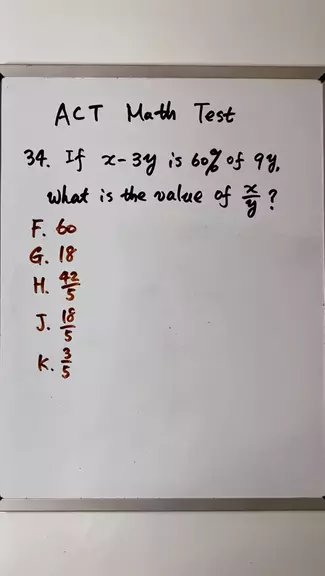 ACT Math Test
34. If x-3y is 60% of 9y,
what is the value of x/y ?
F. 60
G. 18
H. 42/5
J. 18/5
K. 3/5